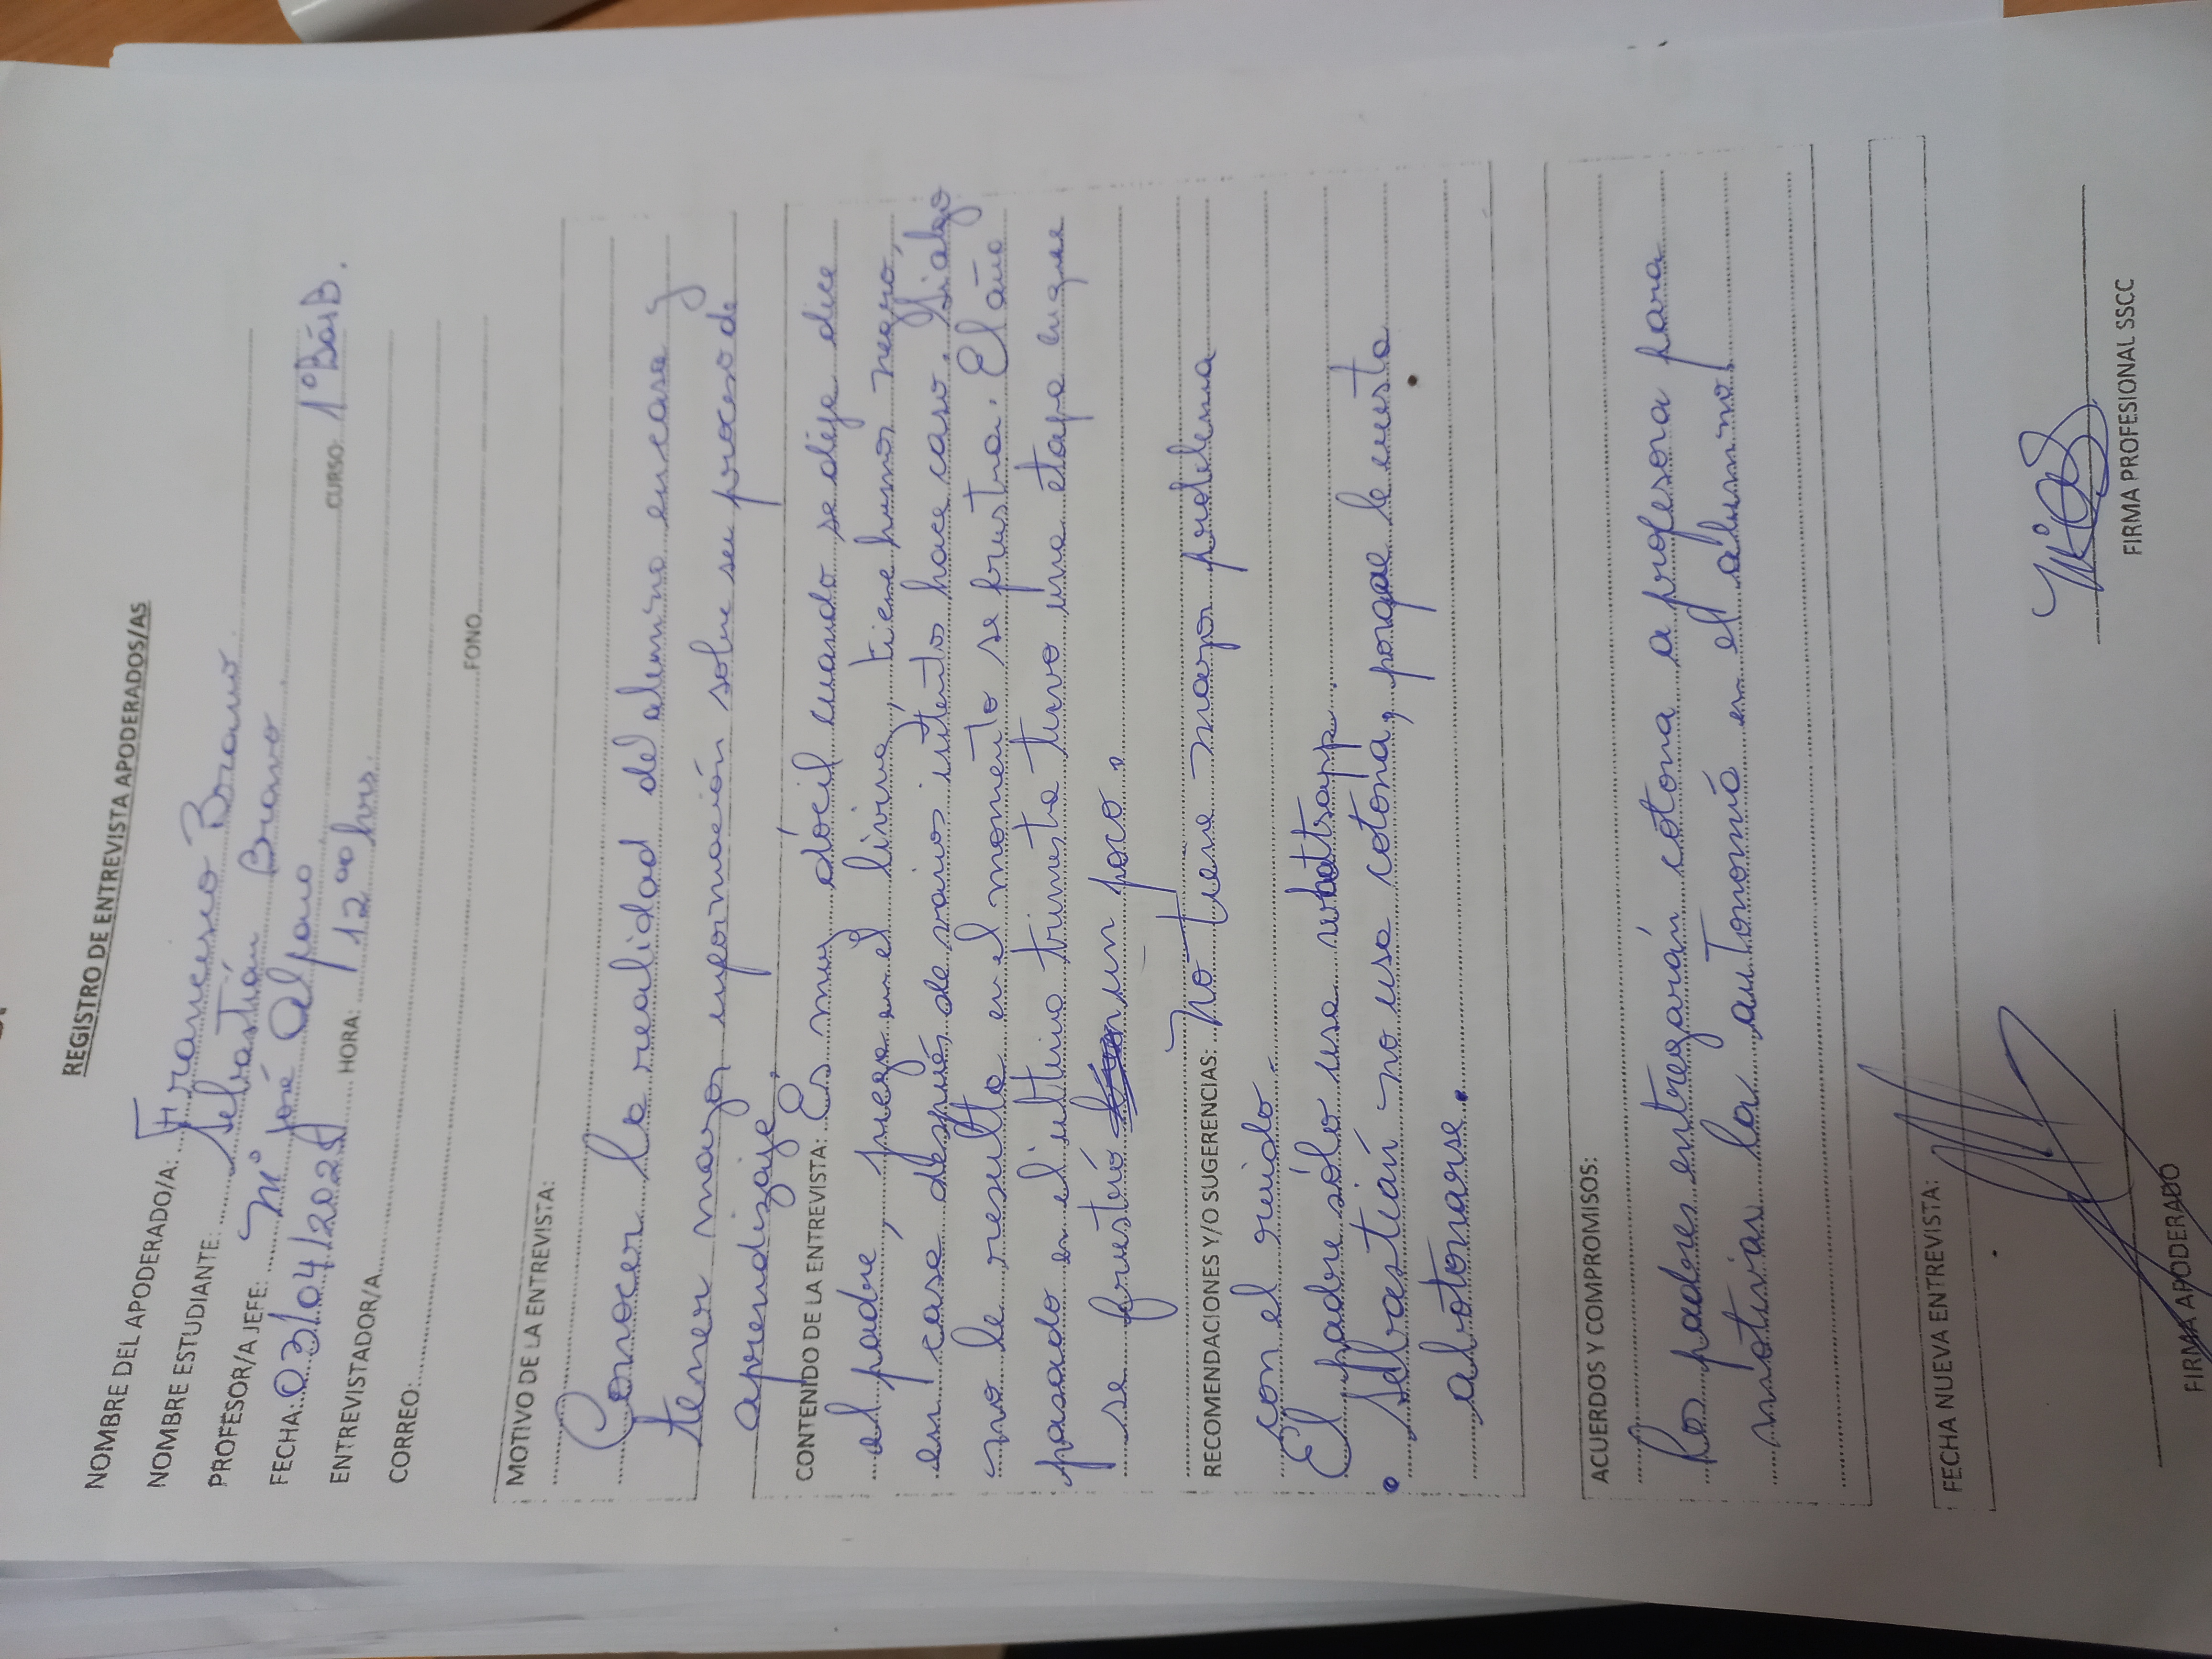 REGISTRO DE ENTREVISTA APODERADOS/AS
NOMBRE DEL APODERADO/A: Francisco Bravo
NOMBRE ESTUDIANTE: Sebastián Bravo
PROFESOR/A JEFE: Mº José Alfaro CURSO 1º Bás B.
FECHA: 03/04/2025 HORA: 12ºº hrs.
ENTREVISTADOR/A
CORREO: FONO
MOTIVO DE LA ENTREVISTA:
Conocer la realidad del alumno en casa y
tener mayor información sobre su proceso de
aprendizaje.
CONTENIDO DE LA ENTREVISTA: Es muy dócil cuando se dice
el padre, juega en el living, tiene humor negro,
en casa después de varios intento hace caso. Si algo
no le resulta en el momento se frustra. El año
pasado en el ultimo trimestre tuvo una etapa en que
se frustró un poco.
RECOMENDACIONES Y/O SUGERENCIAS: No tiene mayor problema
con el ruido.
El padre sólo usa whatsapp.
• Sebastián no usa cotona, porque le cuesta
abotonarse.
ACUERDOS Y COMPROMISOS:
Los padres entregarán cotona a profesora para
motivar la autonomía en el alumno.
FECHA NUEVA ENTREVISTA:
FIRMA APODERADO FIRMA PROFESIONAL SSCC